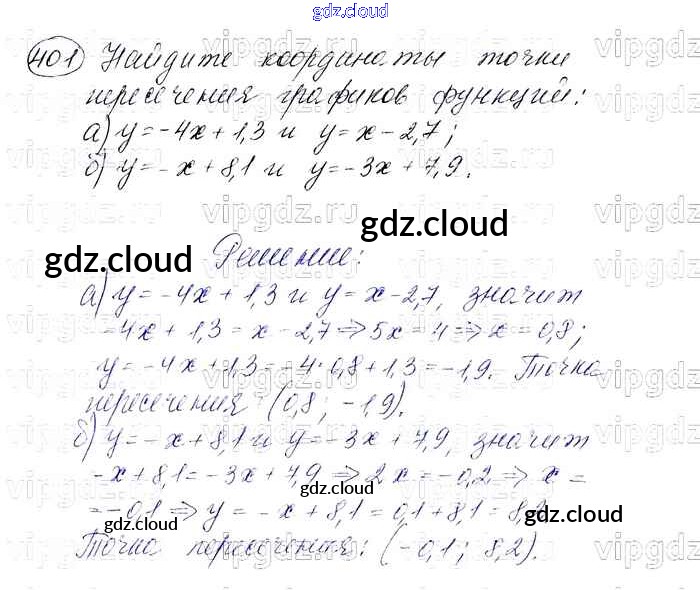 gdz.cloud
401 Найдите координаты точки
пересечения графиков функций:
а) y = -4x + 1,3 и y = x - 2,7;
б) y = -x + 8,1 и y = -3x + 7,9.
gdz.cloud
gdz.cloud
Решение:
а) y = -4x + 1,3 и y = x - 2,7, значит
-4x + 1,3 = x - 2,7 ⇒ 5x = 4 ⇒ x = 0,8;
y = -4x + 1,3 = -4·0,8 + 1,3 = -1,9. Точка
пересечения: (0,8; -1,9).
б) y = -x + 8,1 и y = -3x + 7,9, значит
-x + 8,1 = -3x + 7,9 ⇒ 2x = -0,2 ⇒ x =
gdz.cloud
= -0,1 ⇒ y = -x + 8,1 = 0,1 + 8,1 = 8,2.
gdz.cloud
gdz.cloud
Точка пересечения: (-0,1; 8,2).